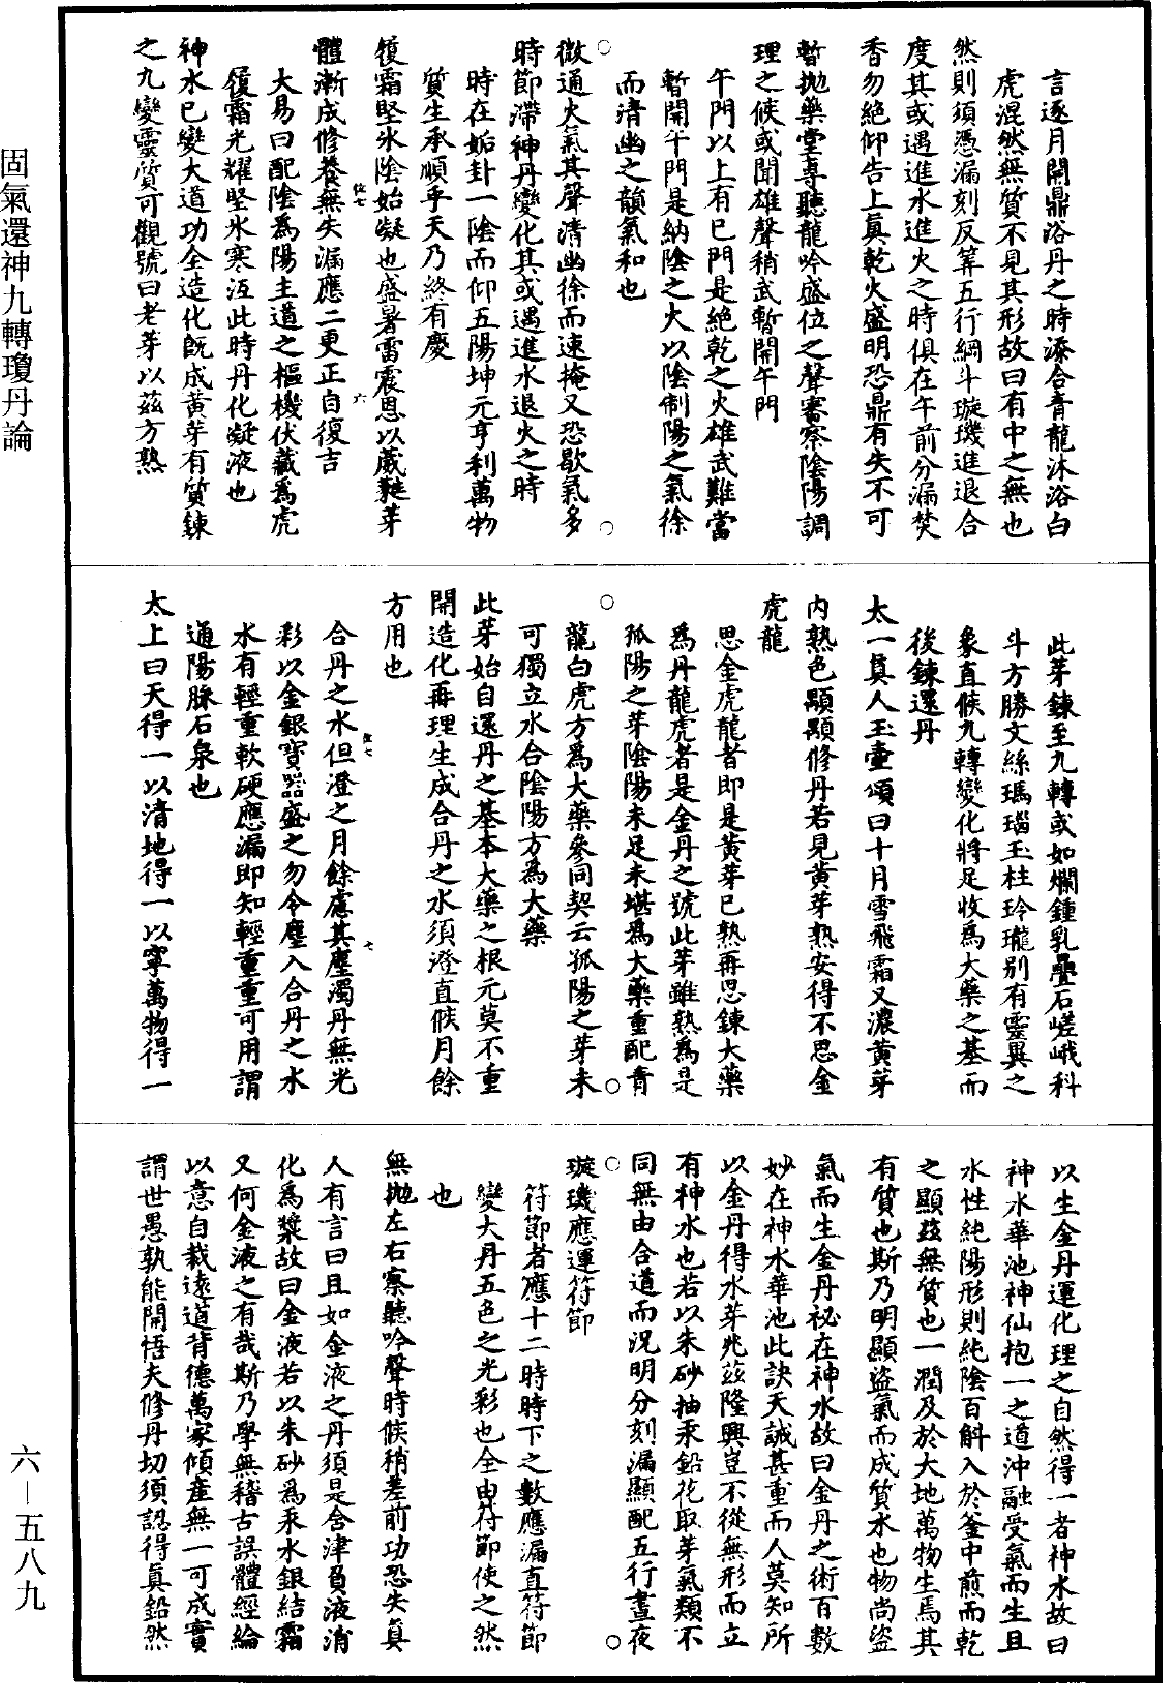 固氣還神九轉瓊丹論
六—五八九
言逐月開鼎浴丹之時添合青龍沐浴白
虎混然無質不見其形故曰有中之無也
然則須憑漏刻反筭五行綱斗璇璣進退合
度其或遇進水進火之時俱在午前分漏焚
香勿絕仰告上真乾火盛明恐鼎有失不可
暫拋藥堂專聽龍吟盛位之聲審察陰陽調
理之候或聞雄聲稍武暫開午門
午門以上有巳門是絕乾之火雄武難當
暫開午門是納陰之火以陰制陽之氣徐
而清幽之韻氣和也
○微通火氣其聲清幽徐而速掩又恐歇氣多○
時節滯神丹變化其或遇進水退火之時
時在姤卦一陰而仰五陽坤元亨利萬物
質生承順乎天乃終有慶
履霜堅氷陰始凝也盛暑雷震恩以葳蕤芽
體漸成修養無失漏應二更正自復吉
大易曰配陰為陽主道之樞機伏藏為虎
履霜光耀堅氷寒沍此時丹化凝液也
神水已變大道功全造化既成黃芽有質鍊
之九變靈質可觀號曰老芽以茲方熟
此芽鍊至九轉或如爛鍾乳壘石嵯峨科
斗方勝文絲瑪瑙玉柱玲瓏別有靈異之
象直候九轉變化將足收為大藥之基而
後鍊還丹
太一真人玉壷頌曰十月雪飛霜又濃黃芽
內熟色顯顯修丹若見黃芽熟安得不思金
虎龍
思金虎龍者即是黃芽已熟再思鍊大藥
為丹龍虎者是金丹之號此芽雖熟為是
孤陽之芽陰陽未足未堪為大藥重配青
○龍白虎方為大藥參同契云孤陽之芽未○
可獨立水合陰陽方為大藥
此芽始自還丹之基本大藥之根元莫不重
開造化再理生成合丹之水須澄直候月餘
方用也
合丹之水但澄之月餘慮其塵濁丹無光
彩以金銀寶器盛之勿令塵入合丹之水
水有輕重軟硬應漏即知輕重重可用謂
通陽脉石泉也
太上曰天得一以清地得一以寧萬物得一
以生金丹運化理之自然得一者神水故曰
神水華池神仙抱一之道沖融受氣而生且
水性純陽形則純陰百斛入於釜中煎而乾
之顯茲無質也一潤及於大地萬物生焉其
有質也斯乃明顯盜氣而成質水也物尚盜
氣而生金丹祕在神水故曰金丹之術百數
妙在神水華池此訣天誡甚重而人莫知所
以金丹得水芽兆茲隆興豈不從無形而立
有神水也若以朱砂抽汞鉛花取芽氣類不
同無由合道而況明分刻漏顯配五行晝夜
○璇璣應運符節○
符節者應十二時時下之數應漏直符節
變大丹五色之光彩也全由符節使之然
也
無拋左右察聽吟聲時候稍差前功恐失真
人有言曰且如金液之丹須是含津負液消
化為漿故曰金液若以朱砂為汞水銀結霜
又何金液之有哉斯乃學無稽古誤體經綸
以意自裁遠道背德萬家傾產無一可成實
謂世愚孰能開悟夫修丹切須認得真鉛然